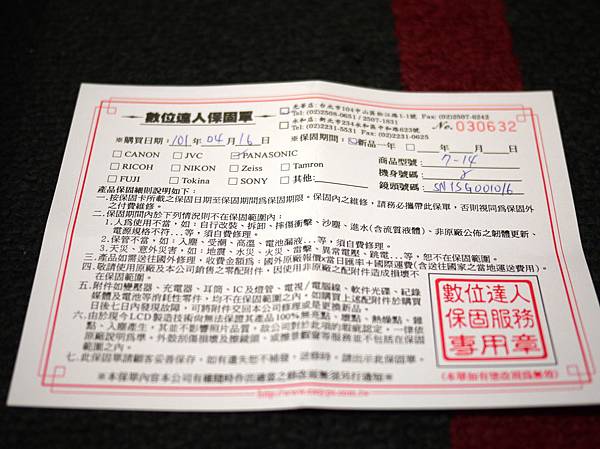 數位達人保固單
光華店: 台北市104中山區松江路1-1號 Fax: (02)2507-6242
Tel: (02)2508-0651 / 2507-1831
永和店: 新北市234永和區中和路623號
Tel: (02)2231-5531 Fax: (02)2231-0625
No. 030632
※購買日期: 101 年 04 月 16 日
※保固期間: 新品一年
年 月 日
CANON JVC PANASONIC
商品型號: 7-14
RICOH NIKON Zeiss Tamron
機身號碼:
FUJI Tokina SONY 其他:
鏡頭號碼: SN1SG001016
產品保固細則說明如下:
一.按保固卡所載之保固日期至保固期間為保固期限。保固內之維修,請務必攜帶此保單,否則視同為保固外之付費維修。
二.保固期間內於下列情況則不在保固範圍內:
1.人為使用不當,如:自行改裝、拆卸、摔傷衝擊、沙塵、進水(含流質液體)、非原廠公佈之韌體更新、
電源規格不符...等,須自費修理。
2.保管不當,如:入塵、受潮、高溫、電池漏液...等,須自費修理。
3.天災、意外災害,如:地震、水災、火災、雷擊、異常電壓、跳電...等,恕不在保固範圍內。
三.產品如需送往國外修理,收費金額為:國外原廠報價x當日匯率+國際運費(含送往國家之當地運送費用)。
四.敬請使用原廠及本公司銷售之零配附件,因使用非原廠之配附件造成損壞不
在保固內。
五.附件如變壓器、充電器、耳筒、IC及燈管、電視/電腦線、軟件光碟、紀錄
媒體及電池等消耗性零件,均不在保固範圍之內,如購買上述配附件於購買
日後七日內發現故障,可將附件交回本公司修理或是更換新品。
六.由於現今LCD製造技術尚無法保證其產品100%無亮點、壞點、熱燥點、雜
點、入塵產生,其並不影響照片品質,故公司對於此項的瑕疵認定,一律依
原廠說明為準。外殼刮傷損壞及擦鏡頭、或擦感觀窗等服務並不包括在保固
範圍之內。
七.此保固單請顧客妥善保存,如有遺失恕不補發,送修時,請出示此保固單。
※本保單內容本公司有權隨時作出適當之修改報無須另行通知※
數位達人
保固服務
專用章
(本單如有塗改視為無效)